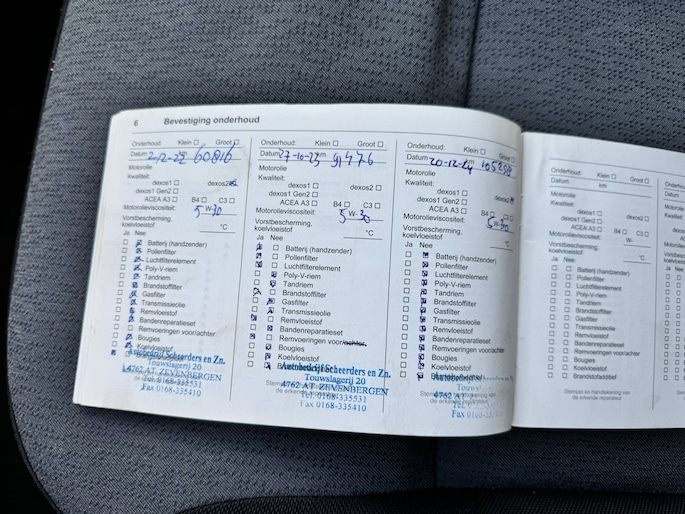 6 Bevestiging onderhoud
Onderhoud: Klein ☐ Groot ☐
Datum 2/12-22 60816
Motorolie
Kwaliteit:
dexos1 ☐ dexos2
dexos1 Gen2 ☐
ACEA A3 ☐ B4 ☐ C3 ☐
Motorolieviscositeit: 5 W-30
Vorstbescherming,
koelvloeistof °C
Ja Nee
Batterij (handzender)
Pollenfilter
Luchtfilterelement
Poly-V-riem
Tandriem
Brandstoffilter
Gasfilter
Transmissieolie
Remvloeistof
Bandenreparatieset
Remvoeringen voor/achter
Bougies
Koelvloeistof
Autobedrijf Scheerders en Zn.
Touwslagerij 20
4762 AT ZEVENBERGEN
Tel. 0168-335531
Fax 0168-335410
Onderhoud: Klein ☐ Groot ☐
Datum 27-10-23 km 91476
Motorolie
Kwaliteit:
dexos1 ☐ dexos2 ☐
dexos1 Gen2 ☐
ACEA A3 ☐ B4 ☐ C3 ☐
Motorolieviscositeit: 5 W-30
Vorstbescherming,
koelvloeistof °C
Ja Nee
Batterij (handzender)
Pollenfilter
Luchtfilterelement
Poly-V-riem
Tandriem
Brandstoffilter
Gasfilter
Transmissieolie
Remvloeistof
Bandenreparatieset
Remvoeringen voor/achter
Bougies
Koelvloeistof
Autobedrijf Scheerders en Zn.
Touwslagerij 20
4762 AT ZEVENBERGEN
Tel. 0168-335531
Fax 0168-335410
Onderhoud: Klein ☐ Groot ☐
Datum 20-12-24 km
Motorolie
Kwaliteit:
dexos1 ☐ dexos2
dexos1 Gen2 ☐
ACEA A3 ☐ B4 C3
Motorolieviscositeit: 5 W-30
Vorstbescherming,
koelvloeistof °C
Ja Nee
Batterij (handzender)
Pollenfilter
Luchtfilterelement
Poly-V-riem
Tandriem
Brandstoffilter
Gasfilter
Transmissieolie
Remvloeistof
Bandenreparatieset
Remvoeringen voor/achter
Bougies
Koelvloeistof
Autobedrijf
4762 AT
Tel. 0168
Fax 0168-33
Onderhoud: Klein ☐ Groot ☐
Datum km
Motorolie
Kwaliteit:
dexos1 ☐ dexos2 ☐
dexos1 Gen2 ☐
ACEA A3 ☐ B4 ☐ C3 ☐
Motorolieviscositeit: W-
Vorstbescherming,
koelvloeistof °C
Ja Nee
Batterij (handzender)
Pollenfilter
Luchtfilterelement
Poly-V-riem
Tandriem
Brandstoffilter
Gasfilter
Transmissieolie
Remvloeistof
Bandenreparatieset
Remvoeringen voor/achter
Bougies
Koelvloeistof
Brandstofadditief
Stempel en handtekening van
de erkende reparateur